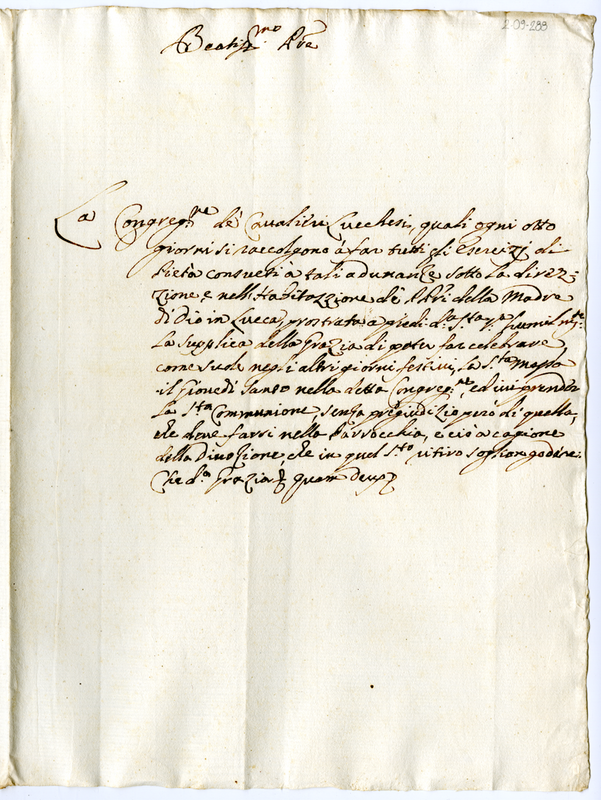 2-09-288
Beatiss.mo Pre
La Congreg.ne de Cavalieri Lucchesi, quali ogni otto
giorni si raccolgono à far tutti gli Esercizi di
Pietà consueti à tali adunanze sotto la direz-
zione, e nell'Habitazzione de Padri della Madre
di Dio in Lucca, prostrata a piedi d. S.ta V.ra humilm.te
la supplica della Grazia di poter far celebrare
come suole negl'altri giorni festivi, la S.ta Messa
il Giovedì Santo nella detta Congreg.ne, ed ivi prender
la S.ta Communione, senza pregiudizio però di quella,
che deve farsi nella Parrocchia, e ciò a cagione
della Divozione, che in quel S.to ritiro soglion godere.
Che d.a Grazia quam Deus